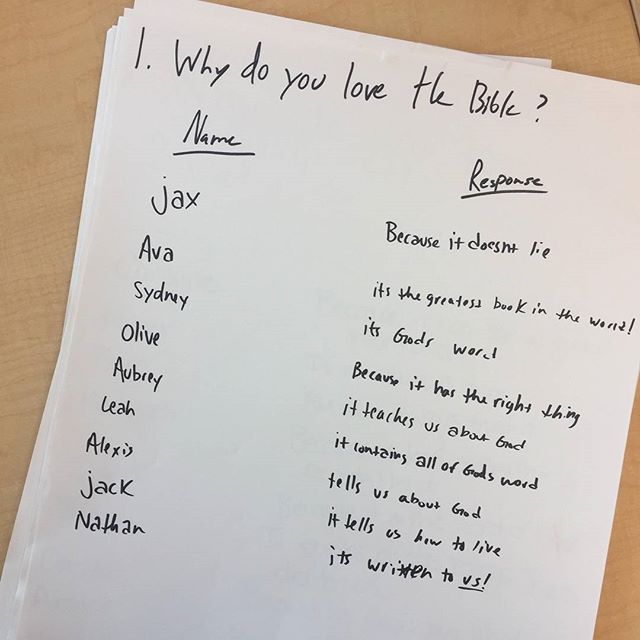 1. Why do you love the Bible?
Name Response
jax Because it doesnt lie
Ava its the greatest book in the world!
Sydney its Gods word
Olive Because it has the right thing
Aubrey it teaches us about God
Leah it contains all of Gods word
Alexis tells us about God
jack it tells us how to live
Nathan its written to us!